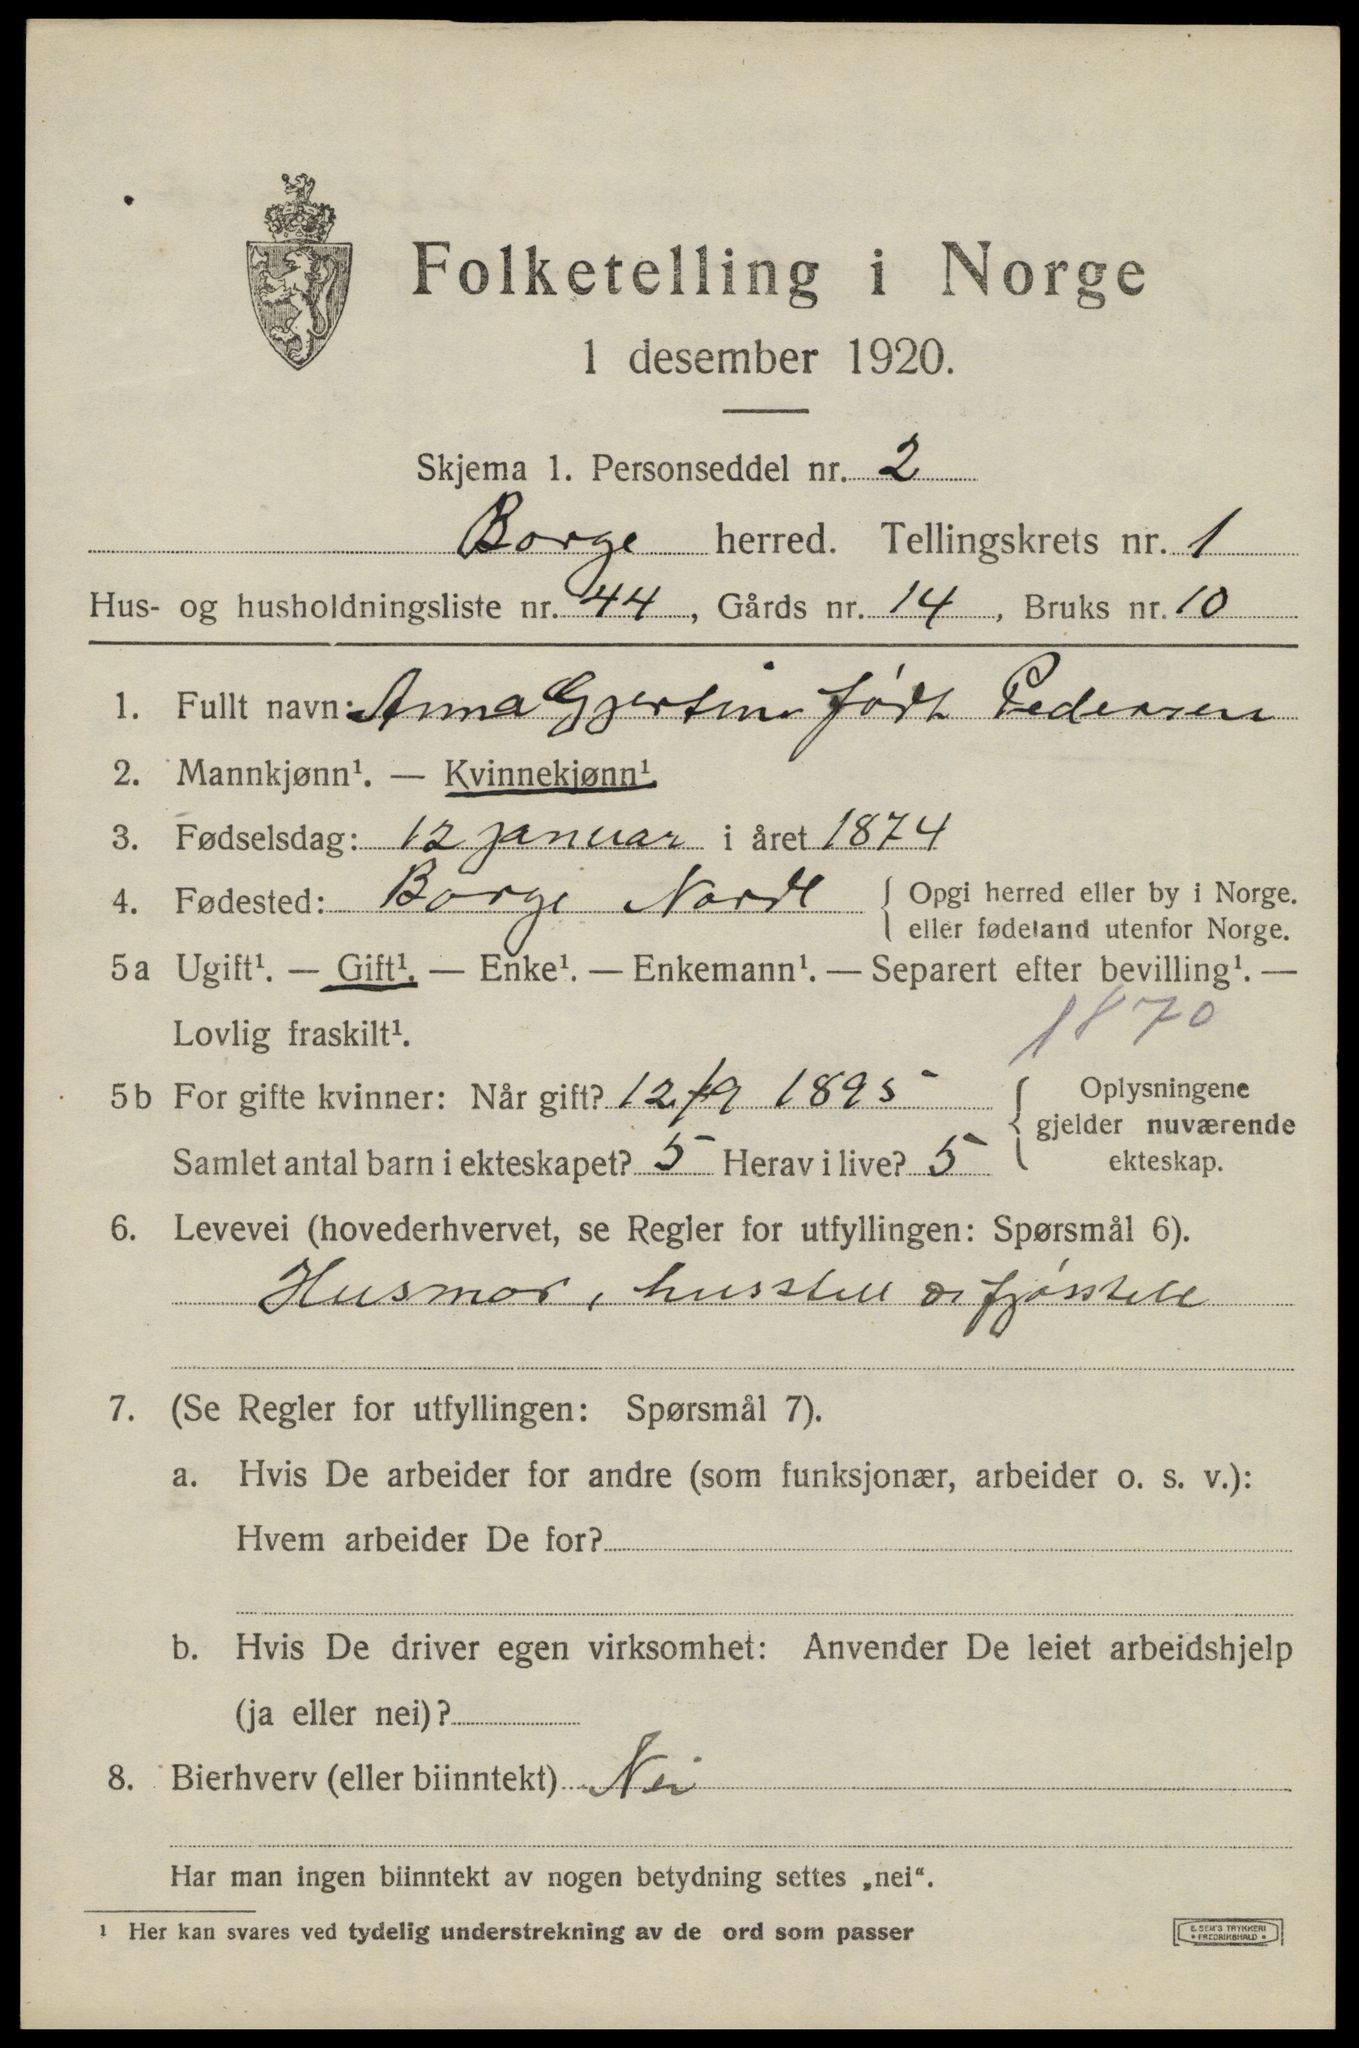 Folketelling i Norge
1 desember 1920.
Skjema 1. Personseddel nr. 2
Borge herred. Tellingskrets nr. 1
Hus- og husholdningsliste nr. 44, Gårds nr. 14, Bruks nr. 10
1. Fullt navn: Anna Gjertine født Pedersen
2. Mannkjønn¹. — Kvinnekjønn¹.
3. Fødselsdag: 12 januar i året 1874
4. Fødested: Borge Nordl { Opgi herred eller by i Norge.
eller fødeland utenfor Norge.
5a Ugift¹. — Gift¹. — Enke¹. — Enkemann¹. — Separert efter bevilling¹. —
Lovlig fraskilt¹. 1870
5b For gifte kvinner: Når gift? 12/9 1895 { Oplysningene
gjelder nuværende
Samlet antal barn i ekteskapet? 5 Herav i live? 5 ekteskap.
6. Levevei (hovederhvervet, se Regler for utfyllingen: Spørsmål 6).
Husmor, husstell og fjøsstell
7. (Se Regler for utfyllingen: Spørsmål 7).
a. Hvis De arbeider for andre (som funksjonær, arbeider o. s. v.):
Hvem arbeider De for?
b. Hvis De driver egen virksomhet: Anvender De leiet arbeidshjelp
(ja eller nei)?
8. Bierhverv (eller biinntekt) Nei
Har man ingen biinntekt av nogen betydning settes „nei“.
¹ Her kan svares ved tydelig understrekning av de ord som passer
E. SEM'S TRYKKERI
• FREDRIKSHALD •